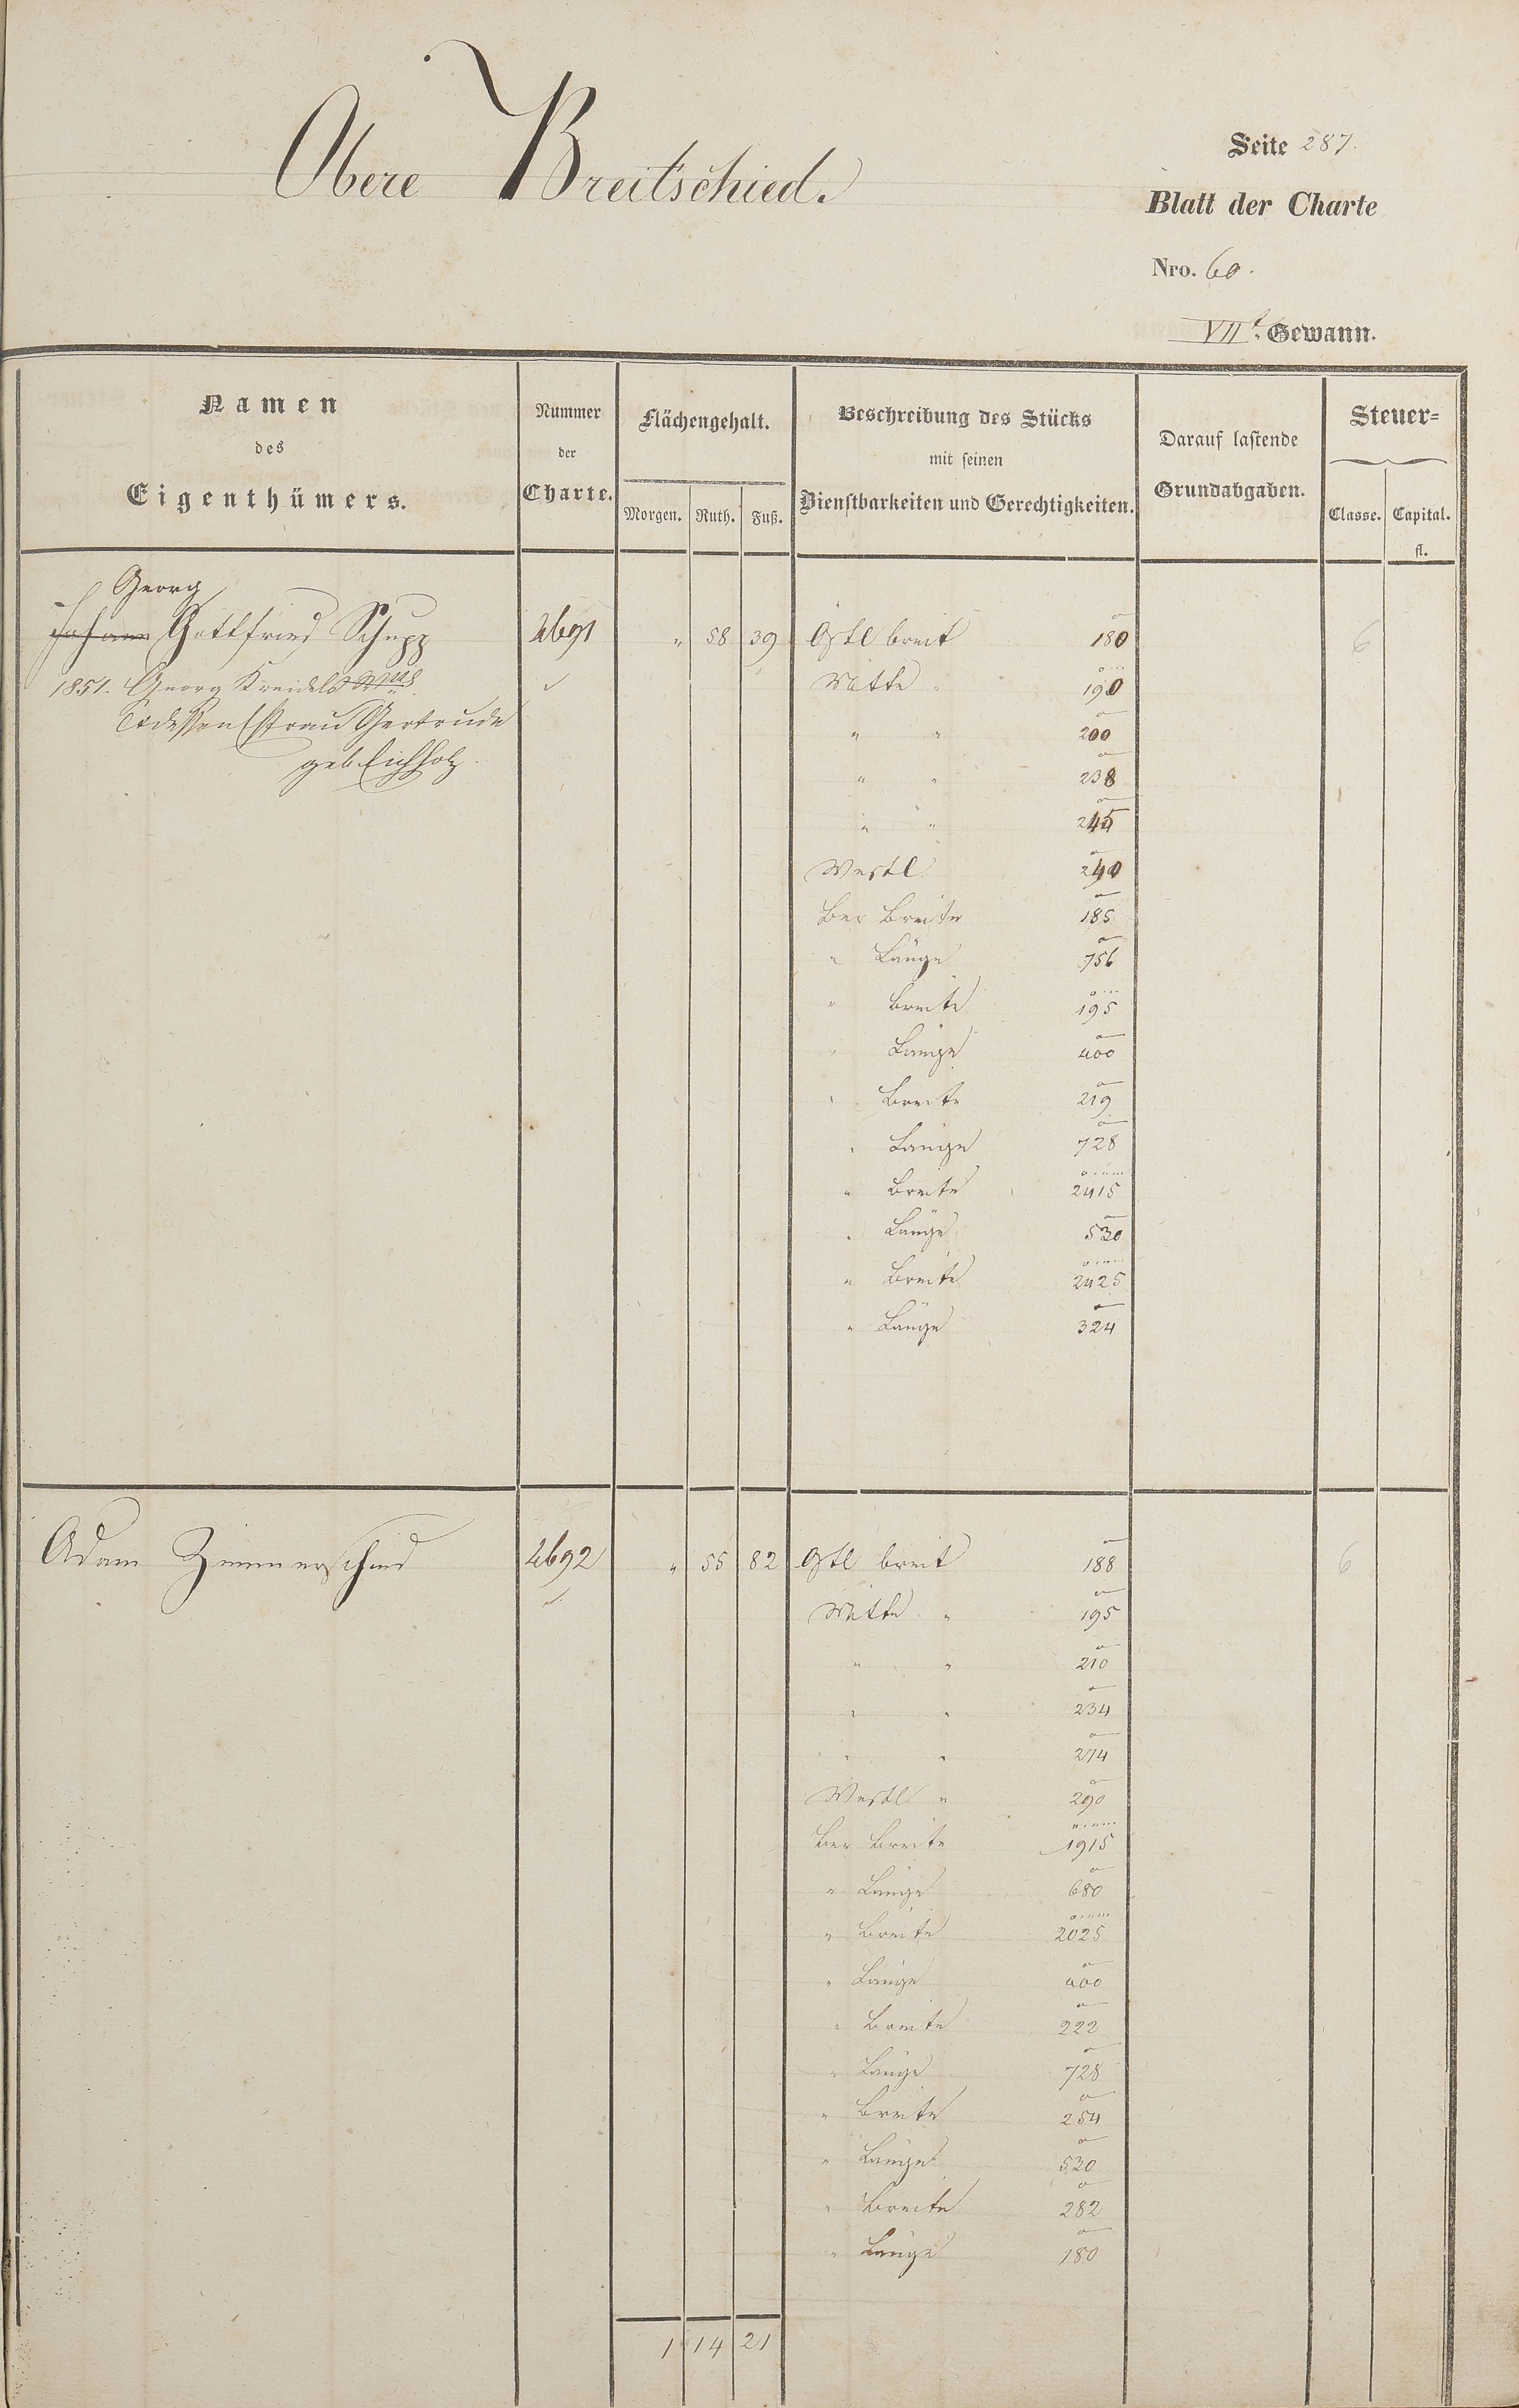 Obere Breitschied.
Seite 287.
Blatt der Charte
Nro. 60.
VIIt. Gewann.
Namen des Eigenthümers.
Nummer der Charte.
Flächengehalt.
Morgen. Ruth. Fuß.
Beschreibung des Stücks
mit seinen
Dienstbarkeiten und Gerechtigkeiten.
Darauf lastende
Grundabgaben.
Steuer=
Classe. Capital.
fl.
Georg
Johann Gottfried Schupp 2691 " 58 39 Ostl breit 180 6
1851. Georg Kreidels Mitte " 190
Gertrude " " 200
geb. Eichholz. " " 238
" " 245
Westl 240
Ber Breite 185
" Länge 756
" Breite 195
" Länge 400
" Breite 219
" Länge 728
" Breite 2415
" Länge 530
" Breite 2425
" Länge 324
Adam Zimmerschied 2692 " 55 82 Ostl breit 188 6
Mitte " 195
" " 210
" " 234
" " 274
Westl " 290
Ber Breite 1915
" Länge 680
" Breite 2025
" Länge 400
" Breite 222
" Länge 728
" Breite 254
" Länge 530
" Breite 282
" Länge 180
1 14 21